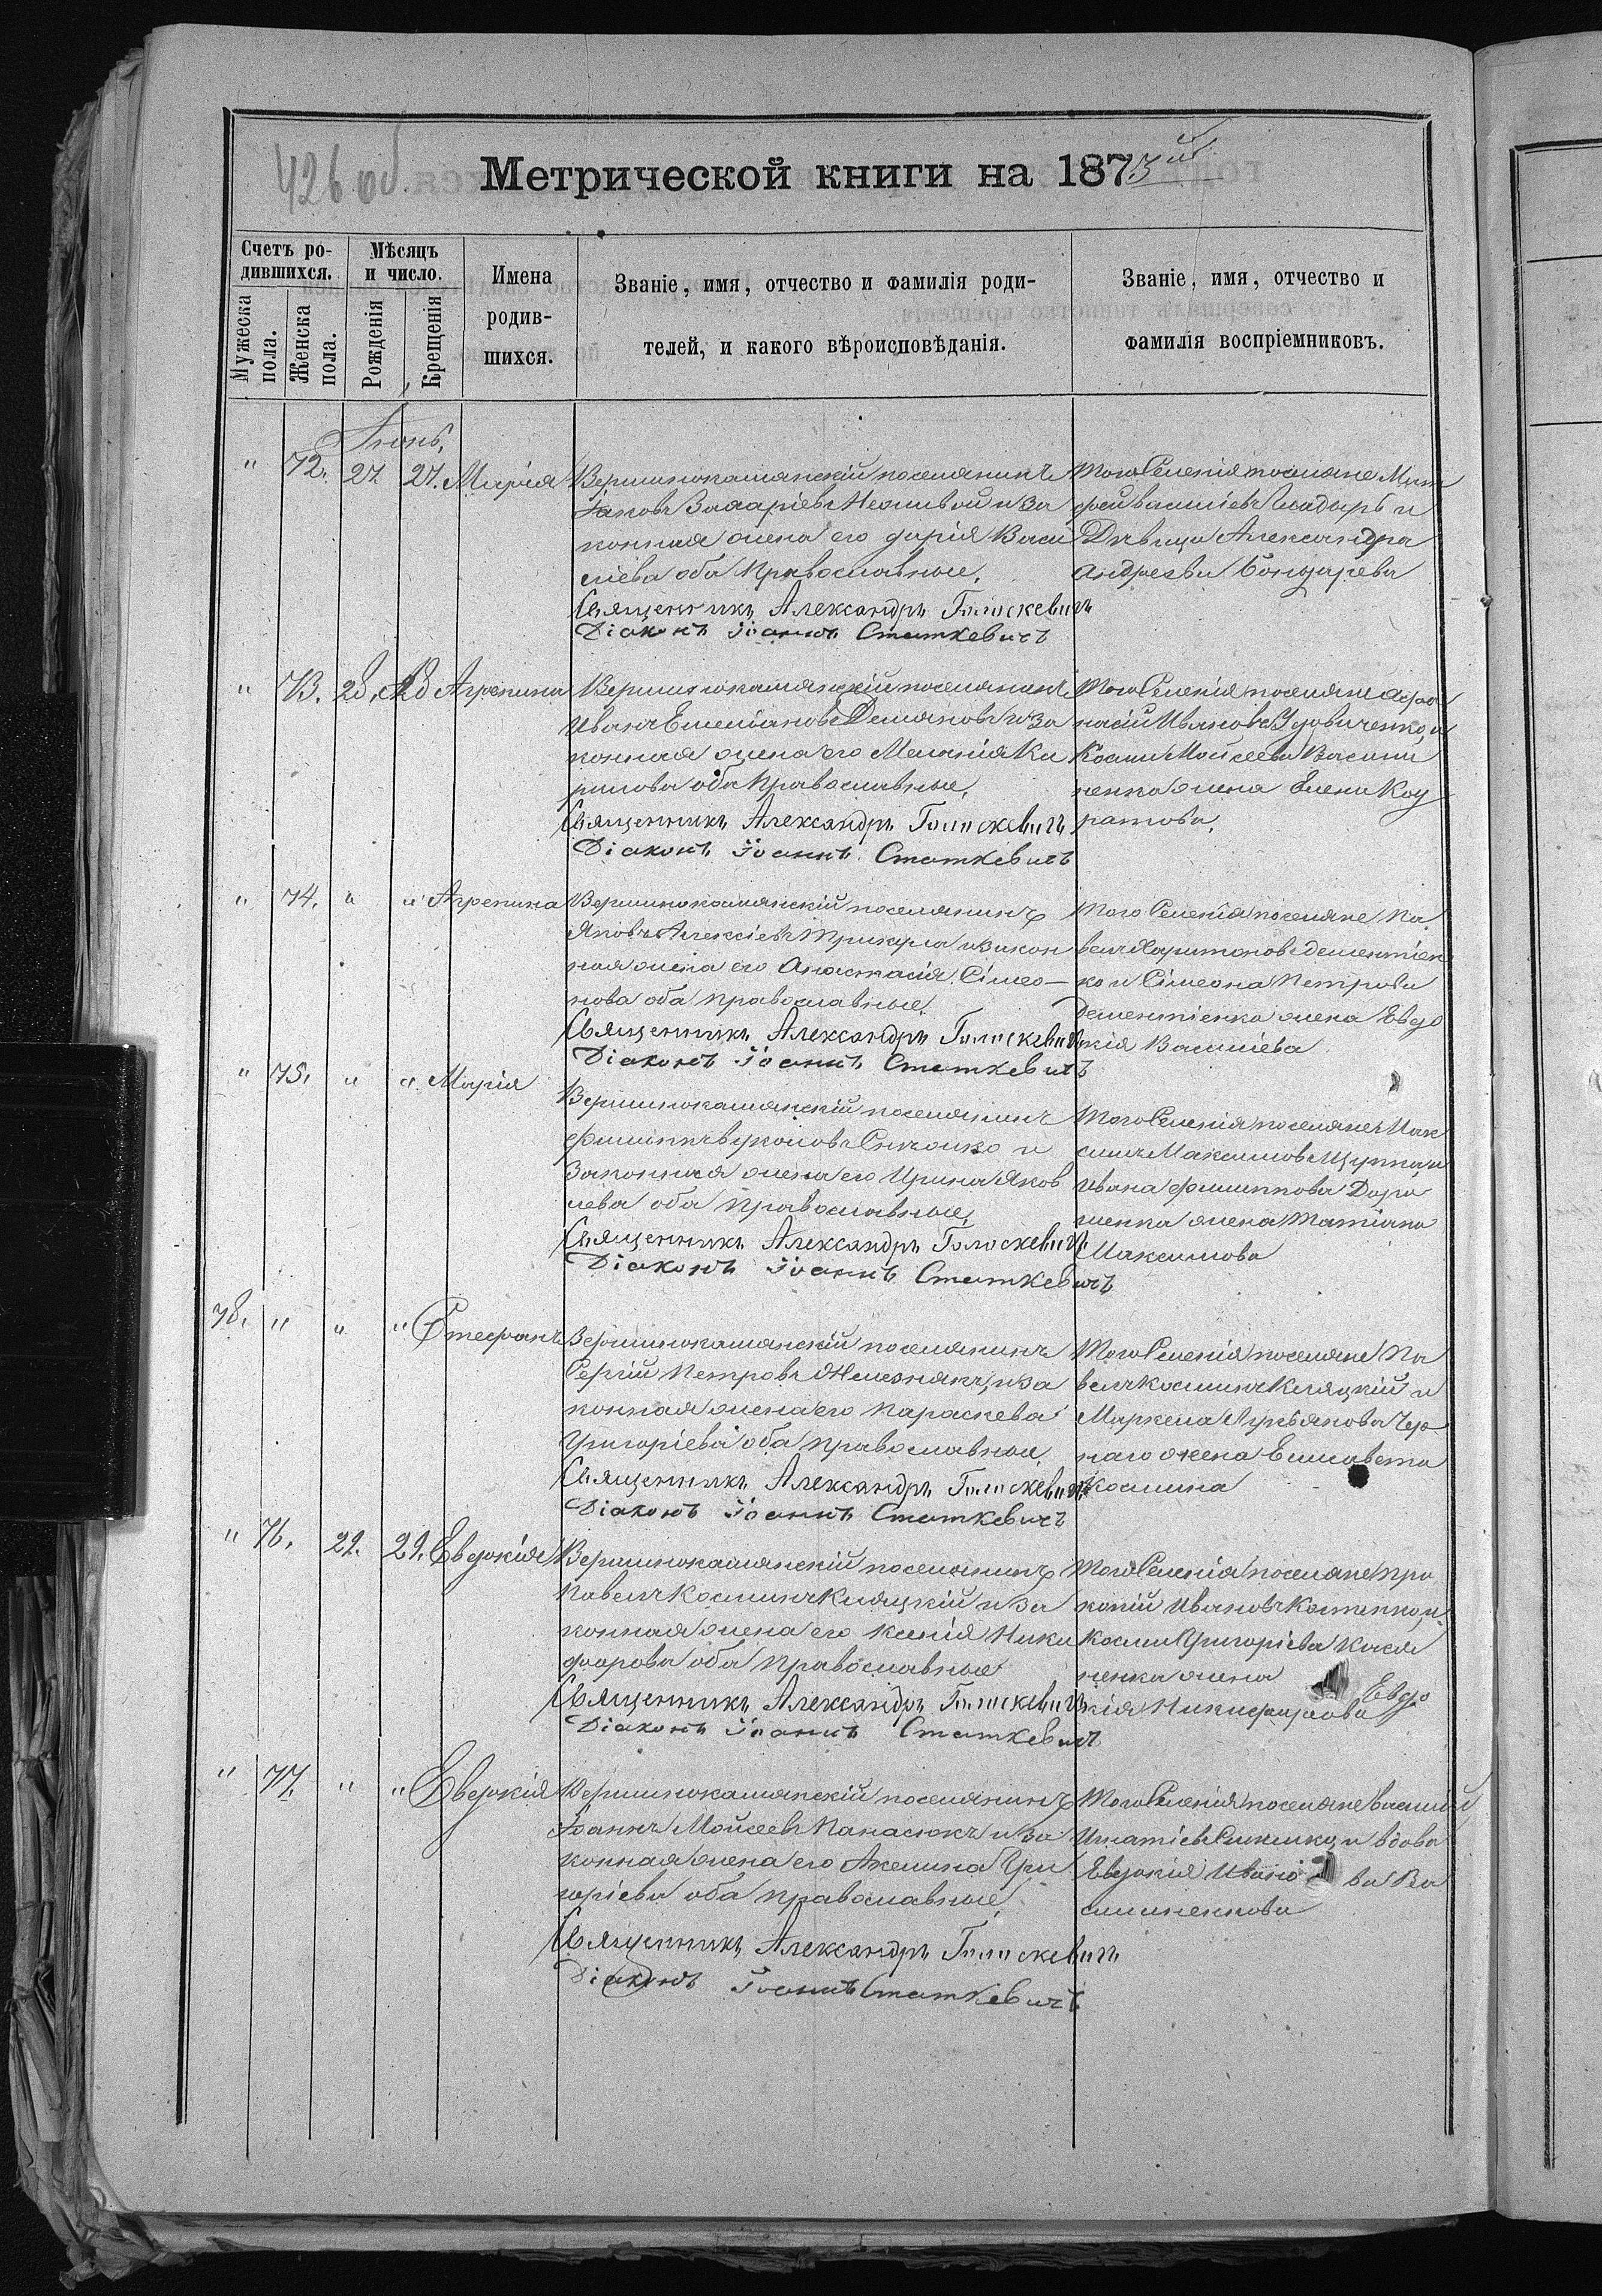 426 об.
Метрической книги на 1873й
Счетъ ро-
дившихся.
Мѣсяцъ
и число.
Имена
родив-
шихся.
Мужеска
пола.
Женска
пола.
Рожденія
Крещенія
Званіе, имя, отчество и фамилія роди-
телей, и какого вѣроисповѣданія.
Званіе, имя, отчество и
фамилія воспріемниковъ.
Іюнь.
" 72. 27. 27. Марія
Вершинокамянскій поселянинъ
Іаковъ Захаріевъ Неживой и за
конная жена его Дарія Васи
ліева оба православные.
Священникъ Александръ Голоскевичъ
Діаконъ Іоаннъ Статкевичъ
Того Селенія поселяне Мит
рофанъ Василіевъ и
Дѣвица Александра
Андреева Бондарева
" 73. 28. 28 Агрепина
Вершинокамянскій поселянинъ
Иванъ Емеліановъ Демяновъ и за
конная жена его Меланія Ки
рилова оба православные.
Священникъ Александръ Голоскевичъ
Діаконъ Іоаннъ Статкевичъ
Того Селенія поселяне Афа
насій Ивановъ Удовиченко, и
Космы Мойсеева Васили
ненка жена Елена Кон
ратова.
" 74. " " Агрепина
Вершинокамянскій поселянинъ
Яковъ Алексіевъ и закон
ная жена его Анастасія Сімео-
нова оба православные.
Священникъ Александръ Голоскевичъ
Діаконъ Іоаннъ Статкевичъ
Того Селенія поселяне Па
велъ Харитоновъ Дементіен
ко и Сімеона Петрова
Дементіенка жена Евдо
кія Василіева
" 75. " " Марія
Вершинокамянскій поселянинъ
Филиппъ Вуколовъ и
Законная жена его Ирина Яков
лева оба православные.
Священникъ Александръ Голоскевичъ
Діаконъ Іоаннъ Статкевичъ
Того Селенія поселяне Мак
симъ Максимовъ и
Ивана Филиппова Доро
шенка жена Татіана
Максимова
78. " " " Стефанъ
Вершинокамянскій поселянинъ
Сергій Петровъ Железнякъ, и за
конная жена его Параскева
Григоріева оба православные.
Священникъ Александръ Голоскевичъ
Діаконъ Іоаннъ Статкевичъ
Того Селенія поселяне Па
велъ Косминъ Кляцкій и
Маркела Лукьянова Чер
наго жена Елисавета
Космина
" 76. 29. 29. Евдокія
Вершинокамянскій поселянинъ
Павелъ Косминъ Кляцкій и за
конная жена его Ксенія Ники
форова оба православные
Священникъ Александръ Голоскевичъ
Діаконъ Іоаннъ Статкевичъ
Того Селенія поселяне Про
копій Ивановъ Костенко, и
Космы Григоріева Кася
ненка жена Евдо
кія Никифорова
" 77. " " Евдокія
Вершинокамянскій поселянинъ
Іоаннъ Мойсеевъ Панасюкъ и за
конная жена его Акелина Гри
горіева оба православные.
Священникъ Александръ Голоскевичъ
Діаконъ Іоаннъ Статкевичъ
Того Селенія поселяне Василій
Игнатіевъ и вдова
Евдокія Ивано ва Ва
силиненкова